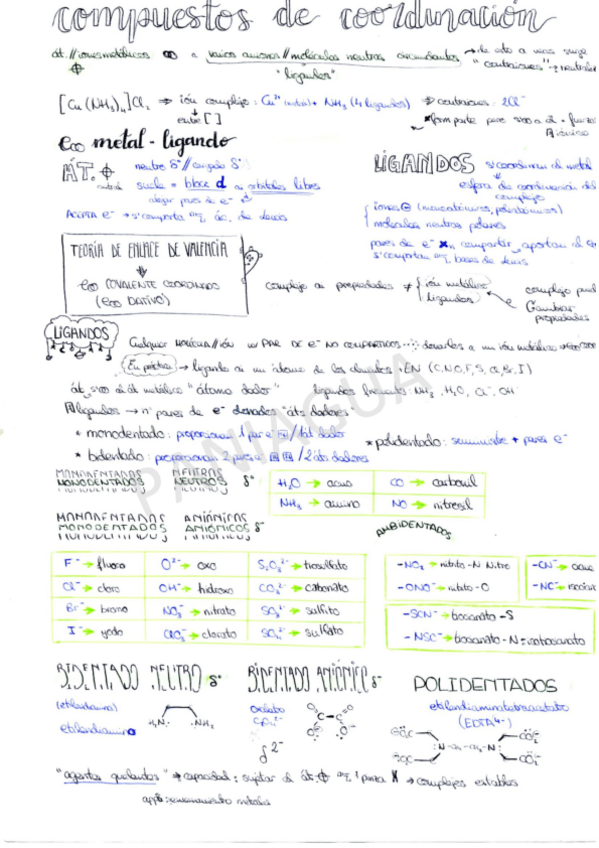 compuestos de coordinación
át. // iones metálicos a varios aniones // moléculas neutras circundantes → de ato a veces surge
"ligandos" "contraiones" → neutraliza
[Cu(NH₃)₄]Cl₂ → ión complejo: Cu²⁺ (metal) + NH₃ (4 ligandos) → contraiones: 2Cl⁻
entre [ ]
metal - ligando
ÁT. central
neutro δ° // cargado δ⁺
suele = bloque d orbitales libres
ACEPTA e⁻ → s'comporta ác. de Lewis
LIGANDOS s'coordinan al metal
esfera de coordinación del complejo
iones ⊖ (monoatómicos, poliatómicos)
moléculas neutras polares
pares de e⁻ compartir, aportan al
s'comportan bases de Lewis
TEORÍA DE ENLACE DE VALENCIA
COVALENTE COORDINADO
(DATIVO)
complejo propiedades ≠ ión metálico
ligandos
complejo
Cambiar propiedades
LIGANDOS
Cualquier MOLÉCULA // IÓN PAR DE e⁻ NO COMPARTIDOS donarlos a un ión metálico
En práctica → ligando un átomo de los elementos +EN (C, N, O, F, S, Cl, Br, I)
át. al át metálico "átomo dador" ligandos frecuentes: NH₃, H₂O, Cl⁻, OH⁻
ligandos → nº pares de e⁻ donados "áts dadores"
* monodentado: proporcionan 1 par e⁻ / 1 át dador
* polidentado: + pares e⁻
* bidentado: proporcionan 2 pares e⁻ / 2 áts dadores
MONODENTADOS NEUTROS δ°
H₂O → acuo
CO → carbonil
NH₃ → amino
NO → nitrosil
MONODENTADOS ANIÓNICOS δ⁻
AMBIDENTADOS
F⁻ → fluoro
O²⁻ → oxo
S₂O₃²⁻ → tiosulfato
Cl⁻ → cloro
OH⁻ → hidroxo
CO₃²⁻ → carbonato
Br⁻ → bromo
NO₃⁻ → nitrato
SO₃²⁻ → sulfito
I⁻ → yodo
ClO₃⁻ → clorato
SO₄²⁻ → sulfato
-NO₂⁻ → nitrito -N Nitro
-ONO⁻ → nitrito -O
-CN⁻ →
-NC⁻ →
-SCN⁻ → tiocianato -S
-NSC⁻ → tiocianato -N = isotiocianato
BIDENTADO NEUTRO δ°
(etilendiamina)
etilendiamino
H₂N NH₂
BIDENTADO ANIÓNICO δ⁻
Oxalato
C₂O₄²⁻
δ²⁻
POLIDENTADOS
etilendiaminotetraacetato
(EDTA⁴⁻)
"agentes quelantes" → capacidad: sujetar al át. pinza → complejos estables
PANIAGUA